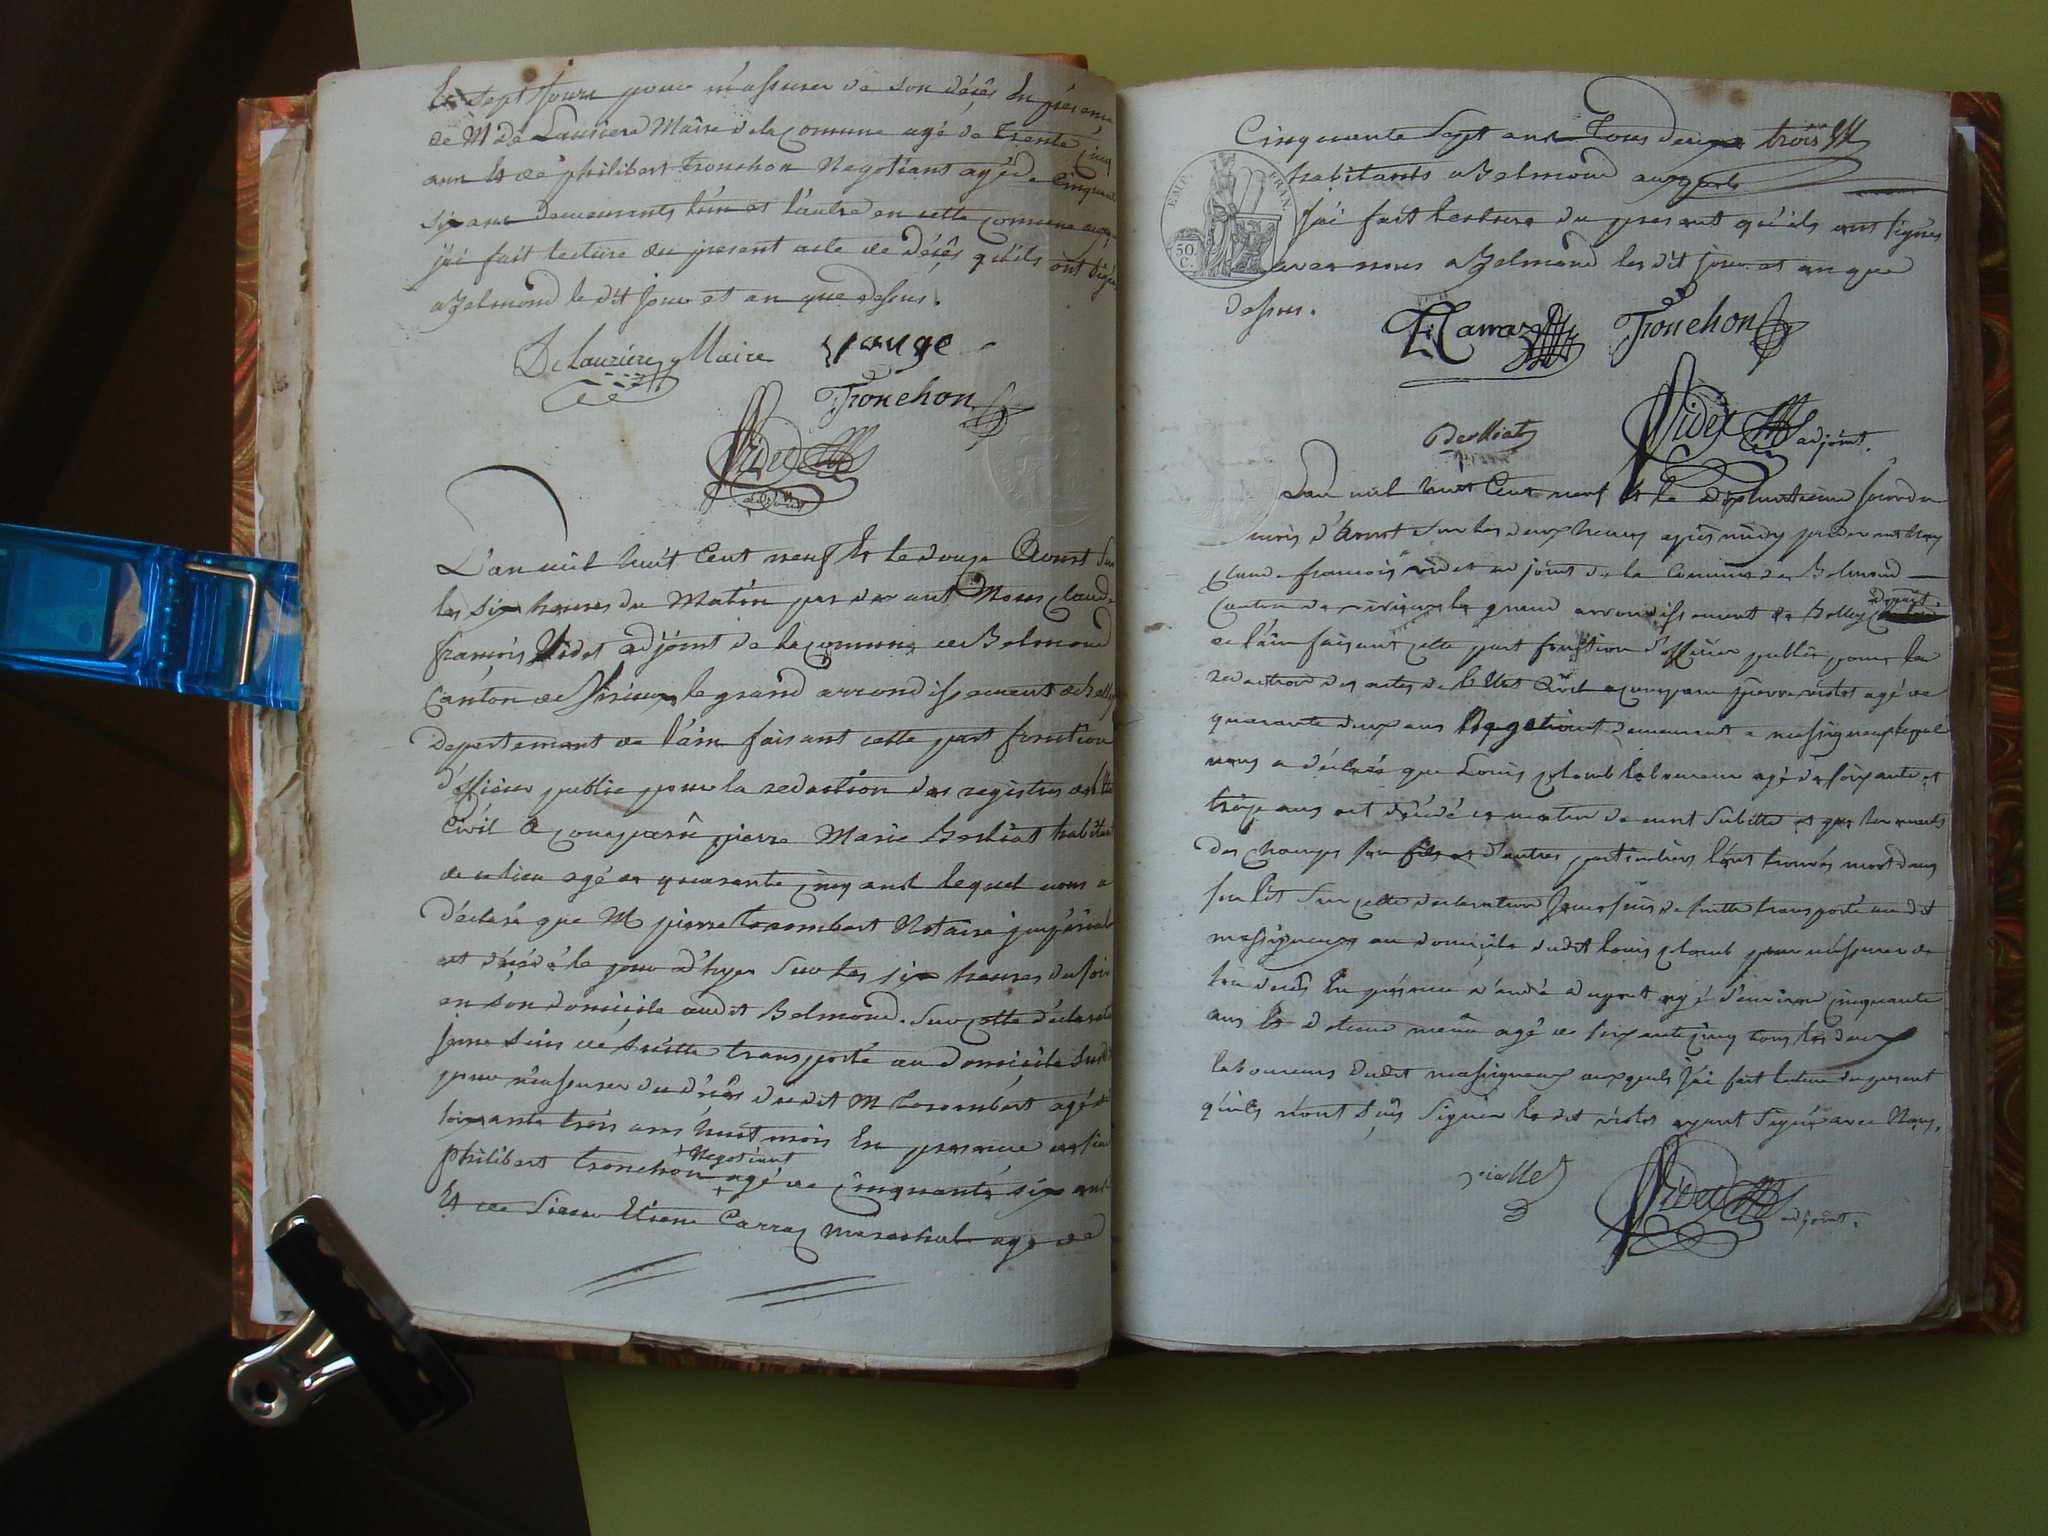 les sept jours pour m'assurer de son décés En présence
de M de Lauziere Maire de la comune agé de trente cinq
ans Et de philibert tronchon Negotiant agé de cinquante
six ans demeurants l'un et l'autre en cette comune
j'ai fait lecture du present acte de décés qu'ils ont signé
a Belmond le dit jour et an que dessus.
DeLauziere Maire
Tronchon
Videt
adjoint
L'an mil huit Cent neuf Et le douze Aoust sur
les six heures du Matin par devant Nous claude
françois Videt adjoint de la comune de Belmond
Canton de Virieux le grand arrondissement de belley
Departement de l'ain faisant cette part fonction
d'officier public pour la redaction des registres de l'Etat
Civil a comparu pierre Marie Berliat habitant
de ce lieu agé de quarante cinq ans lequel nous a
déclaré que M pierre Notaire jmpérial
est décédé le jour d'hyer sur les six heures du soir
en son domicile audit Belmond. sur cette déclaration
je me suis de suitte transporté au domicile susdit
pour m'assurer du décés dudit M agé de
soixante trois ans huit mois En presence de sieur
philibert tronchon Negotiant agé de cinquante six ans
Et de Sieur Etiene Carraz marechal agé de
Cinquante Sept ans Tous deux trois
habitants a Belmond auxquels
EMP. FRAN.
50 C.
j'ai fait lecture du present qu'ils ont signés
avec nous a Belmond les dit jour et an que
dessus.
E Carraz Tronchon
Berlliat
Videt adjoint.
L'an mil huit Cent neuf Et le dixhuitieme jour du
mois d'Aoust sur les deux heures après midy par devant Nous
Claude françois videt adjoint de la Commune de Belmond
Canton de virieux le grand arrondissement de Belley Depart
de l'ain faisant cette part fonction d'officier public pour la
redaction des actes de l'Etat Civil a comparu pierre violet agé de
quarante deux ans Negotiant demeurant a massigneux lequel
nous a déclaré que Louis colomb laboureur agé de soixante et
treize ans est décédé ce matin de mort subitte et que
des champs son fils et d'autres particuliers l'ont trouvés mort dans
son lit sur cette declaration je me suis de suitte transporté audit
massigneux au domicile dudit louis colomb pour m'assurer de
son decés En présence d'andré dupont agé d'environ cinquante
ans Et d' agé de soixante cinq tous les deux
laboureurs dudit massigneux auxquels j'ai fait lecture du present
qu'ils n'ont sçus signer le dit violet ayant signé avec Nous.
violle
Videt adjoint.